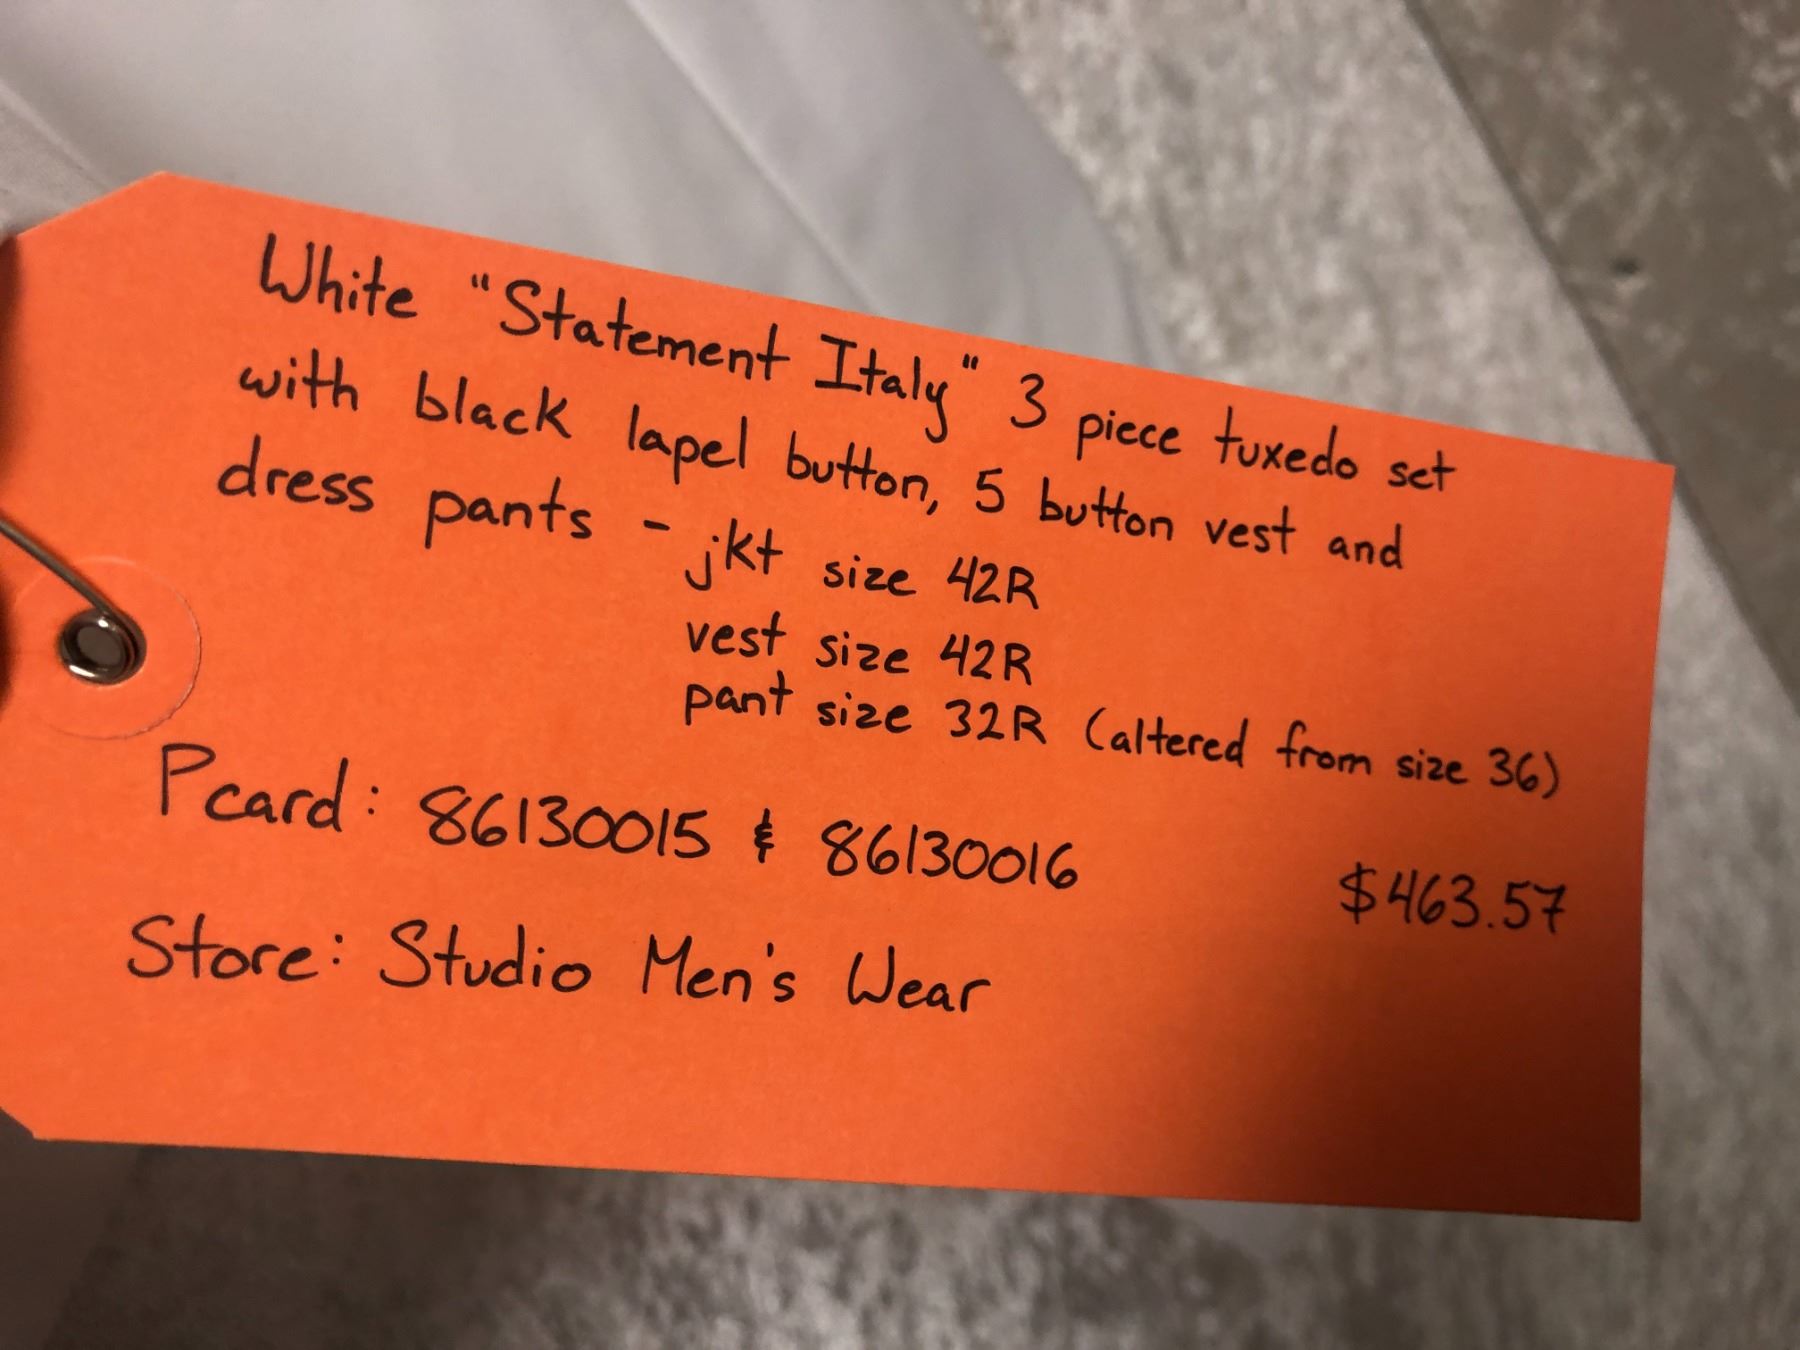 White "Statement Italy" 3 piece tuxedo set
with black lapel button, 5 button vest and
dress pants - jkt size 42R
vest size 42R
pant size 32R (altered from size 36)
Pcard: 86130015 & 86130016
$463.57
Store: Studio Men's Wear